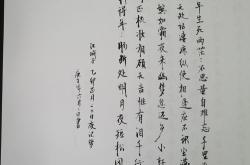 年生死两茫茫不思量自难忘千里
无处话凄凉纵使相逢应不识尘满
鬓如霜夜来幽梦忽还乡小轩
正梳妆相顾无言惟有泪千行
料得年年肠断处明月夜短松冈
江城子 乙卯正月二十日夜记梦